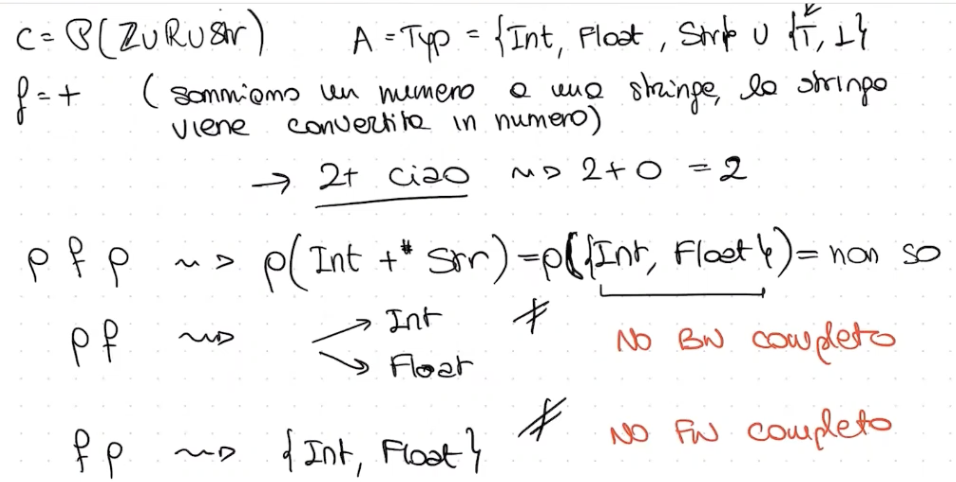 C = ℘(ℤ∪ℝ∪Str) A = Typ = {Int, Float, Str} ∪ {⊤, ⊥}
f = + (sommiamo un numero a una stringa, la stringa
viene convertita in numero)
→ 2+ ciao ⇝ 2+0 = 2
ρ f ρ ⇝ ρ(Int +# Str) = ρ({Int, Float}) = non so
ρ f ⇝ → Int ≠
→ Float
No BW completo
f ρ ⇝ {Int, Float} ≠
No FW completo